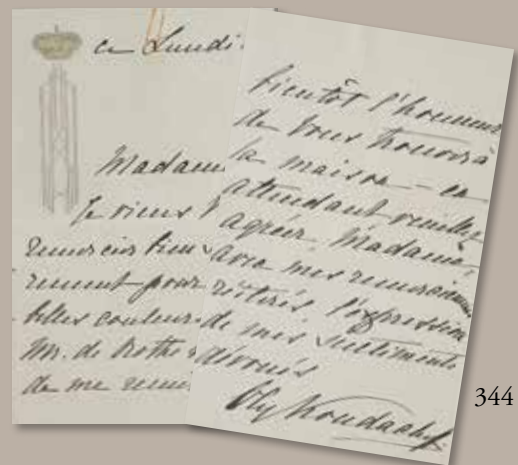 ce Lundi.
Madame
je viens
remercier bien
rement pour
belles couleurs
Mr. de Rothe
de me
bientôt l'honneur
de vous trouver à
la maison – en
attendant veuillez
agréer, Madame,
avec mes remerciements
réitérés l'expression
de mes sentiments
dévoués
Olg Koudachef
344